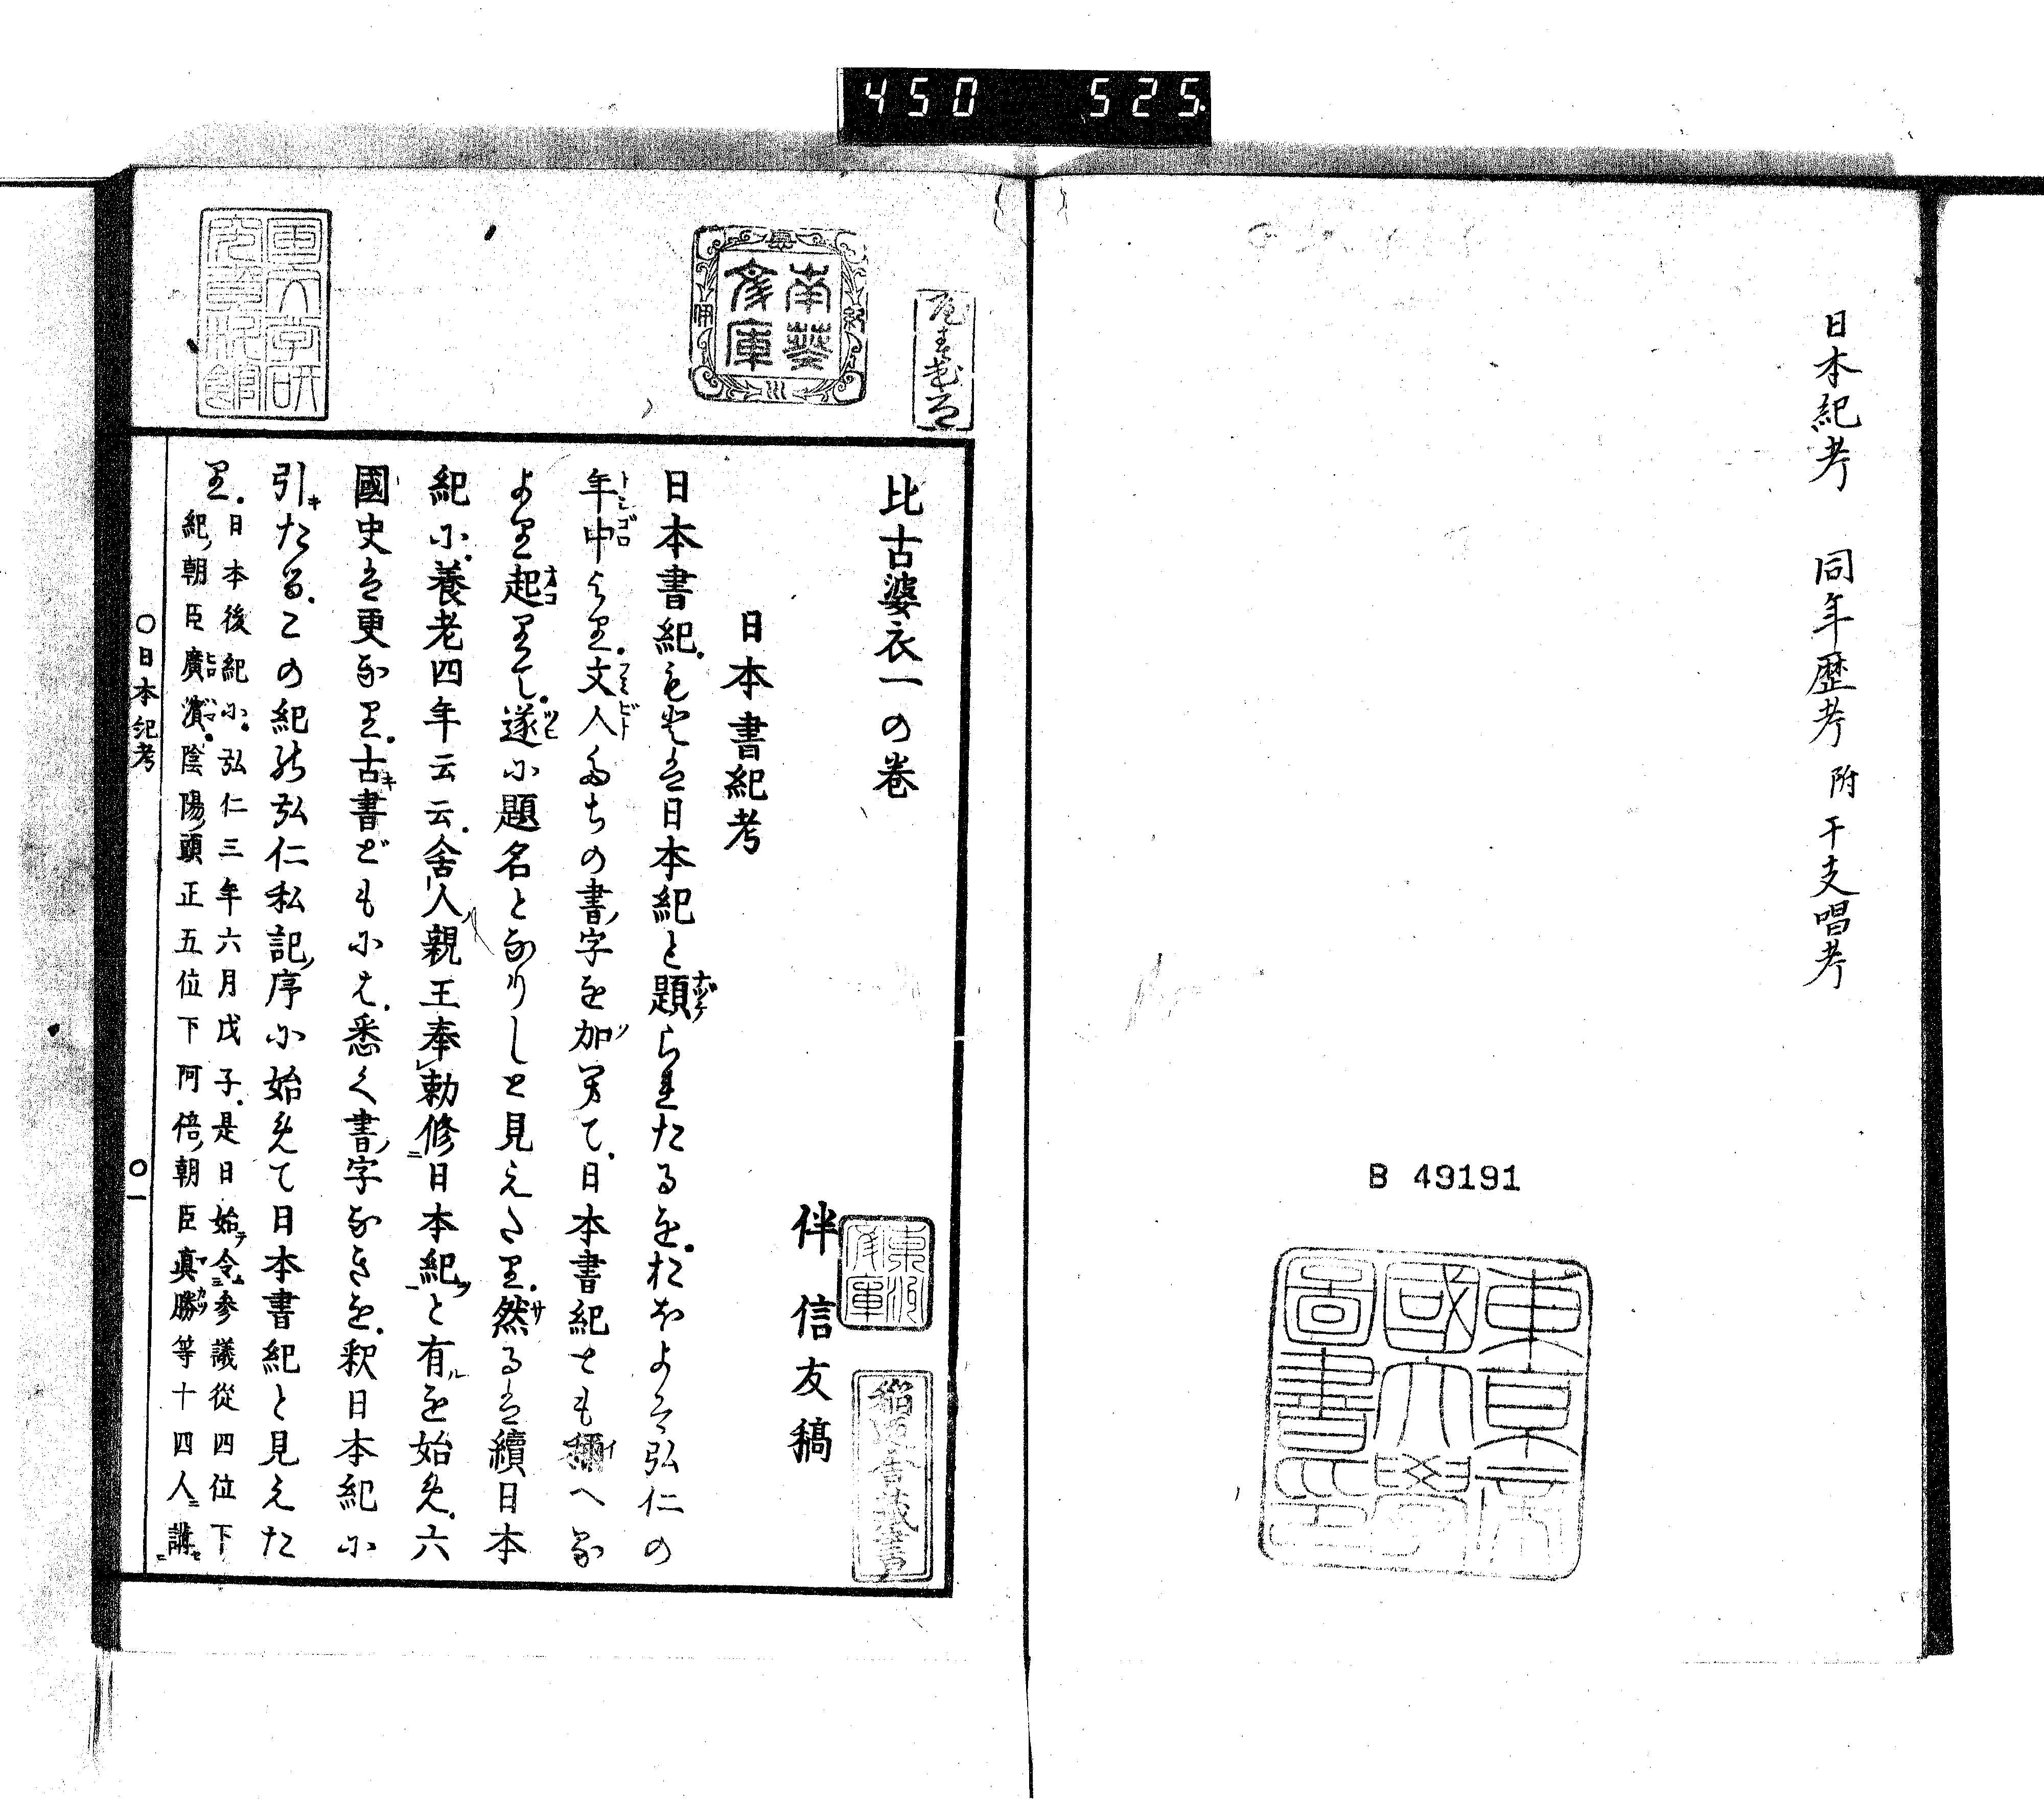 450 525
日本紀考 同年歴考 附 干支唱考
B 49191
東京帝
國大學
圖書印
南葵
文庫
比古婆衣一の巻
伴信友稿
日本書紀考
日本書紀もとは日本紀と題られたるをおほよそ弘仁の
年中より文人たちの書字を加へて日本書紀とも稱へな
より起りて遂に題名となりしと見えたり然るは續日本
紀に養老四年云云舍人親王奉勅修日本紀と有を始め六
國史は更なり古書どもには悉く書字なきを釈日本紀に
引たるこの紀の弘仁私記序に始めて日本書紀と見えた
り
日本後紀に弘仁三年六月戊子是日始令參議從四位下
紀朝臣廣濱陰陽頭正五位下阿倍朝臣真勝等十四人講
○日本紀考 ○一